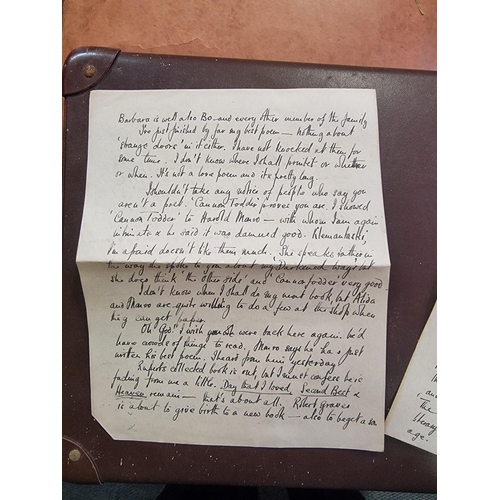 Barbara is well also Bo – and every other member of the family
I've just finished by far my best poem – nothing about
'strange doors' in it either. I have not knocked at them for
some time. I don't know where I shall print it or whether
or when. It's not a love poem and it's pretty long.
I shouldn't take any notice of people who say you
aren't a poet. 'Cannon Fodder' proves you are. I showed
'Cannon Fodder' to Harold Monro – with whom I am again
intimate & he said it was damned good.
I'm afraid doesn't like them much. She speaks rather in
the way she spoke to you about my 'Darkened Ways' but
she does think 'the other side' and 'Cannon Fodder' very good
I don't know when I shall do my next book, but Alida
and Monro are quite willing to do a few at the shop when
they can get paper.
Oh God! I wish you were back here again. We'd
have crowds of things to read. Monro says he has just
written his best poem. I heard from him yesterday
Rupert's collected book is out but I must confess he is
fading from me a little. Day that I loved, Second Best &
Heaven remain – that's about all. Robert Graves
is about to give birth to a new book – also to beget a son
and
The
literary
age.